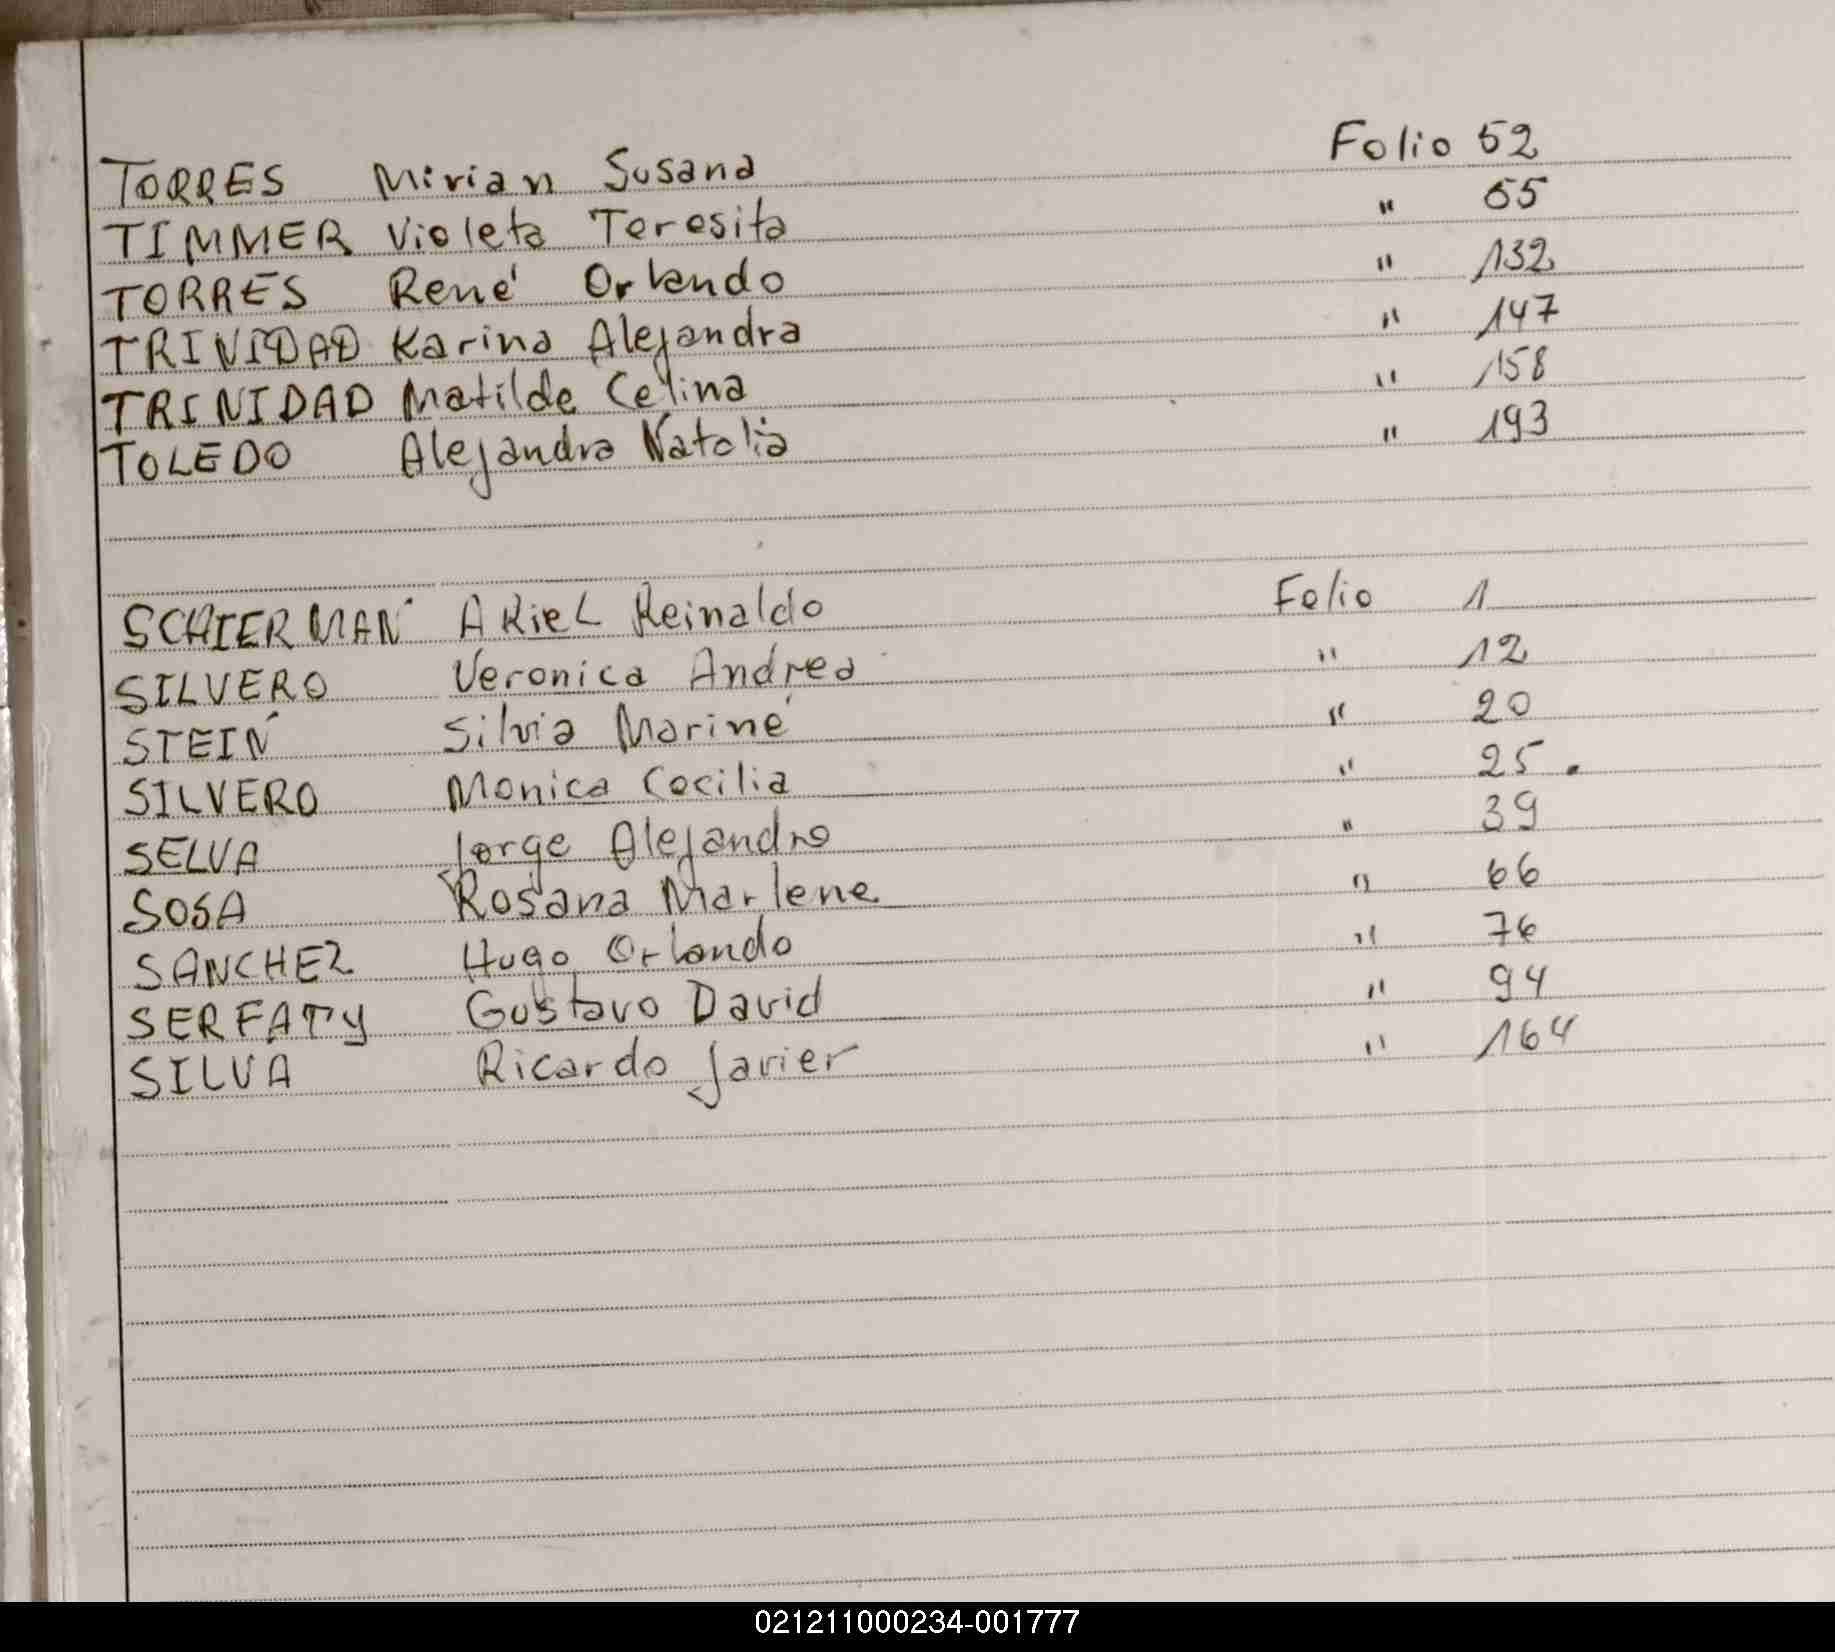 TORRES Mirian Susana Folio 52
TIMMER Violeta Teresita " 55
TORRES René Orlando " 132
TRINIDAD Karina Alejandra " 147
TRINIDAD Matilde Celina " 158
TOLEDO Alejandra Natalia " 193
SCHIERMAN ARieL Reinaldo Folio 1
SILVERO Veronica Andrea " 12
STEIN Silvia Mariné " 20
SILVERO Monica Cecilia " 25.
SELVA Jorge Alejandro " 39
SOSA Rosana Marlene " 66
SANCHEZ Hugo Orlando " 76
SERFATY Gustavo David " 94
SILVA Ricardo Javier " 164
021211000234-001777